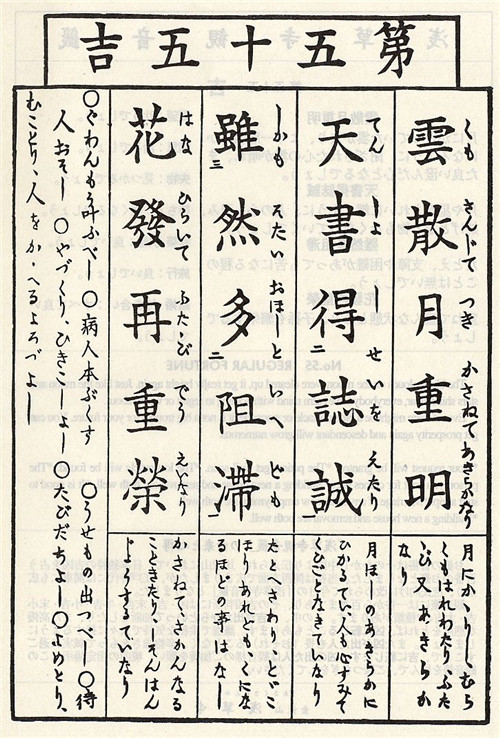 第五十五吉
くも さんじて つき かさねてあきらかなり
雲散月重明
月にかゝりしむら
くもはれわたりふた
ゝびあきらか
なり
てんしよ せいを えたり
天書得二誌誠一
月ほしのあきらかに
ひかるてい人も心すみて
なきていなり
しかも そたい おほしと いへども
雖三然多二阻滞一
たとへさわりとどこ
ほりあれどもくにな
るほどの事はなし
はな ひらいて ふたゝび えなり
花發再重榮
かさねてさかんなる
こときたりしそんはん
じよするていなり
〇ぐわんもう叶ふべし 〇病人本ぶくす 〇うせもの出つべし 〇待
人おそし 〇やづくり、ひきこしよし 〇たびだちよし 〇よめとり、
むことり、人をかゝへるよろづよし